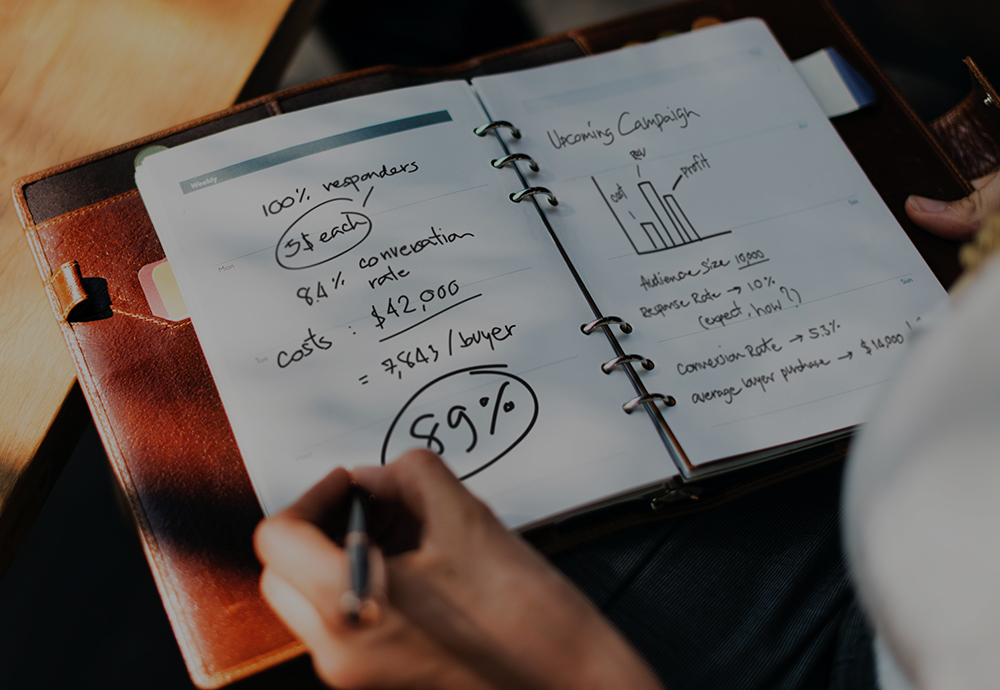 Weekly
100% responders
5$ each
84% conversation
rate
costs : $42,000
= 7,843 / buyer
89%
Mon
Upcoming Campaign
cost
Rev
profit
Audience Size 10,000
Response Rate → 10%
(expect, how?)
Conversion Rate → 5.3%
average buyer purchase → $14,000
Sun